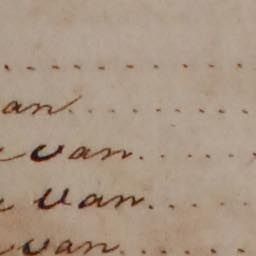 . . . . . . . . . . .
an . . . . . . . . .
van . . . . . .
van . . . . .
van . . . . . .